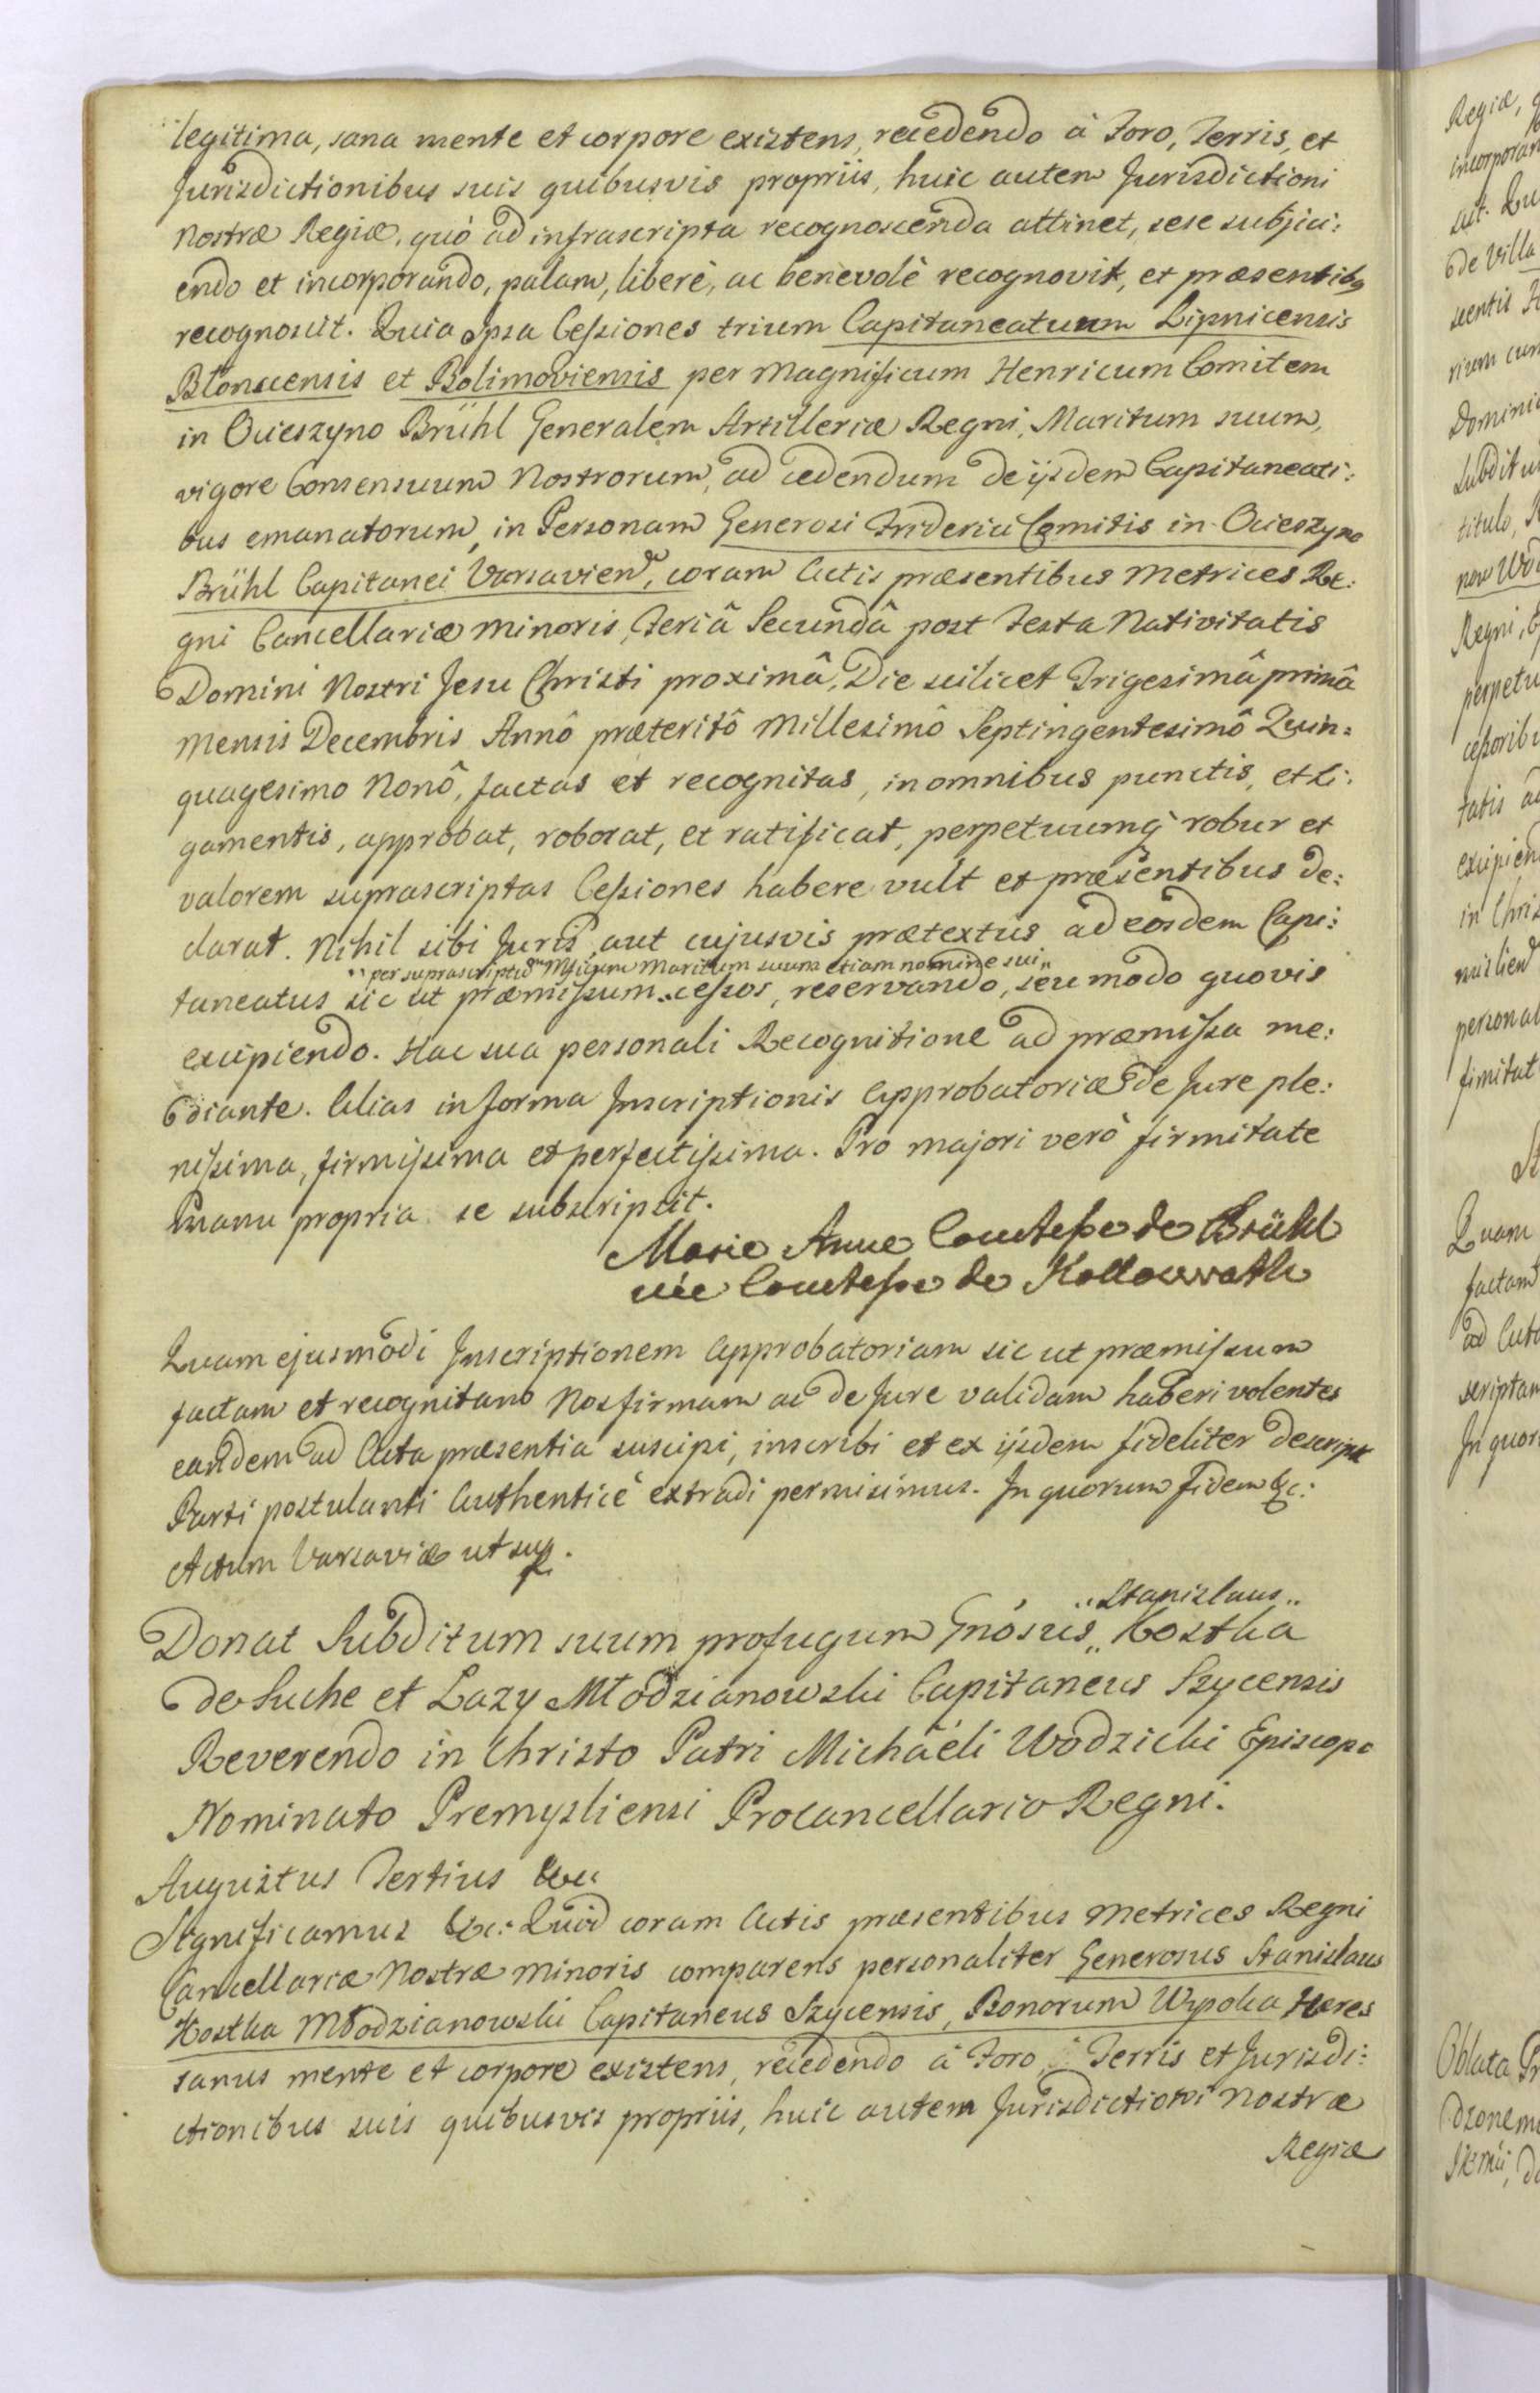 legitima, sana mente et corpore existens, recedendo à Foro, Terris, et
Jurisdictionibus suis quibusvis propriis, huic autem Jurisdictioni
Nostræ Regiæ, quò ad infrascripta recognoscenda attinet, sese subjici:
endo et incorporando, palam, liberè, ac benevolè recognovit, et præsentibq
recognoscit. Quia Ipsa Cessiones trium Capitaneatuum Lipnicensis
Blonscensis et Bolimoviensis per Magnificum Henricum Comitem
in Ocieszyno Brühl Generalem Artilleriæ Regni, Maritum suum,
vigore Consensuum Nostrorum, ad cedendum de ijsdem Capitaneati:
bus emanatorum, in Personam Generosi Friderici Comitis in Ocieszyno
Brühl Capitanei Varsavien, coram Actis præsentibus Metrices Re:
gni Cancellariæ Minoris, Feriâ Secundâ post Festa Nativitatis
Domini Nostri Jesu Christi proximâ, Die scilicet Trigesimâ primâ
Mensis Decembris Annô præteritô Millesimô Septingentesimô Quin:
quagesimo Nonô, factas et recognitas, in omnibus punctis, et Li:
gamentis, approbat, roborat, et ratificat, perpetuumq robur et
valorem suprascriptas Cessiones habere vult et præsentibus de:
clarat. Nihil sibi Juris, aut cujusvis prætextus ad eosdem Capi:
,, per suprascriptum Mficum Maritum suum etiam nomine sui ,,
taneatus sic ut præmissum ,, cessos, reservando, seu modo quovis
excipiendo. Hac sua personali Recognitione ad præmissa me:
diante. Alias in forma Inscriptionis Approbatoriæ de Jure ple:
nissima, firmissima et perfectissima. Pro majori verò firmitate
Manu propria se subscripsit.
Marie Anne Comtesse de Brühl
née Comtesse de Kollowrath
Quam ejusmodi Inscriptionem Approbatoriam sic ut præmissum
factam et recognitam Nos firmam ac de Jure validam haberi volentes
eandem ad Acta præsentia suscipi, inscribi et ex ijsdem fideliter descript
Parti postulanti Authenticè extradi permisimus. In quorum fidem &c:
Actum Varsaviæ ut sup.
,, Stanislaus ,,
Donat Subditum suum profugum Gnosus ,, Kostka
de Suche et Lazy Młodzianowski Capitaneus Szycensis
Reverendo in Christo Patri Michaëli Wodzicki Episcopo
Nominato Premysliensi Procancellario Regni.
Augustus Tertius &c:
Significamus &c: Quid coram Actis præsentibus Metrices Regni
Cancellariæ Nostræ Minoris comparens personaliter Generosus Stanislaus
Kostka Młodzianowski Capitaneus Szycensis, Bonorum Wypoka Hæres
sanus mente et corpore existens, recedendo à Foro, Terris et Jurisdi:
ctionibus suis quibusvis propriis, huic autem Jurisdictioni Nostræ
Regiæ
Regiæ,
incorporan
de Villa
Dominic
Subditu
titulo,
Regni,
perpetu
tatis
excipien
in Chris
personal
firmitat
Quam
factam
ad Acta
scriptam
In quor
Oblata Pr